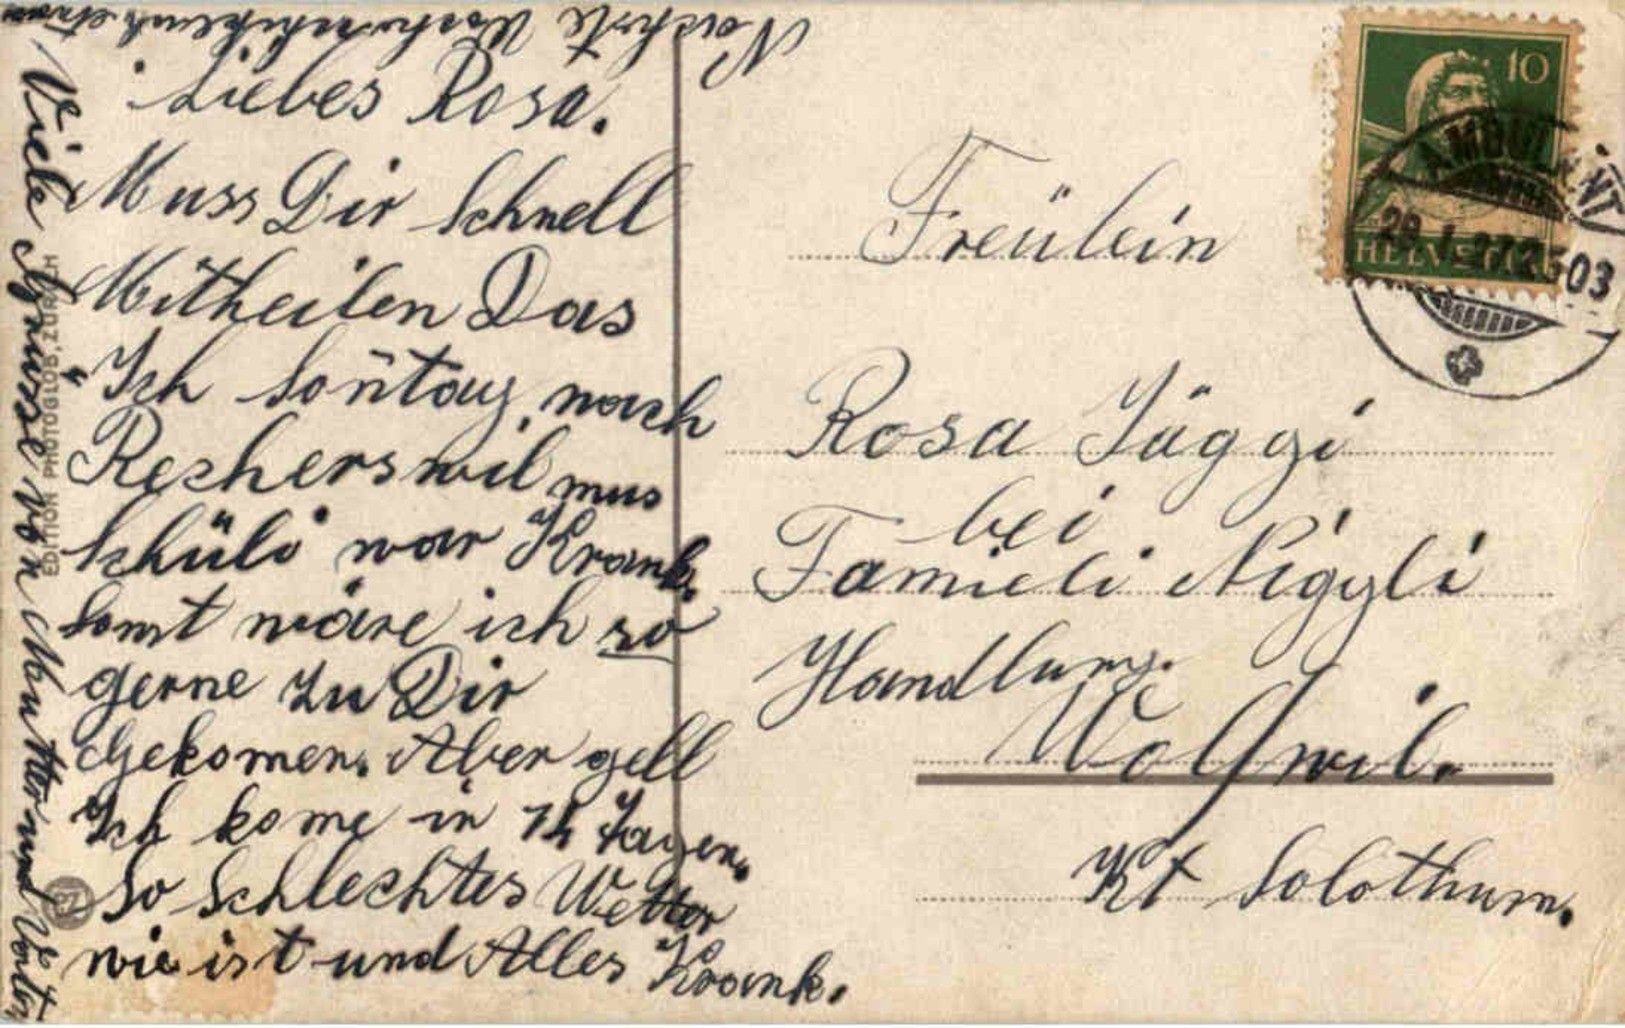 Nachste Woche schike ich etwas
Liebes Rosa.
Muss Dir Schnell
Mitheilen Das
Ich Son̄tag nach
Recherswil mus
Schüli war Krank.
Sonst wäre ich so
gerne zu Dir
Gekomen. Aber gell
Ich kome in 14 Tagen.
So Schlechtes Wetter
wie ist und Alles Krank.
Viele Grüsse von Mutter und Vater
EDITION PHOTOGLOB, ZÜRICH
10
HELVETIA
Freülein
Rosa Jäggi
bei
Famieli Niggli
Handlung.
Wolfwil.
Kt Solothurn.